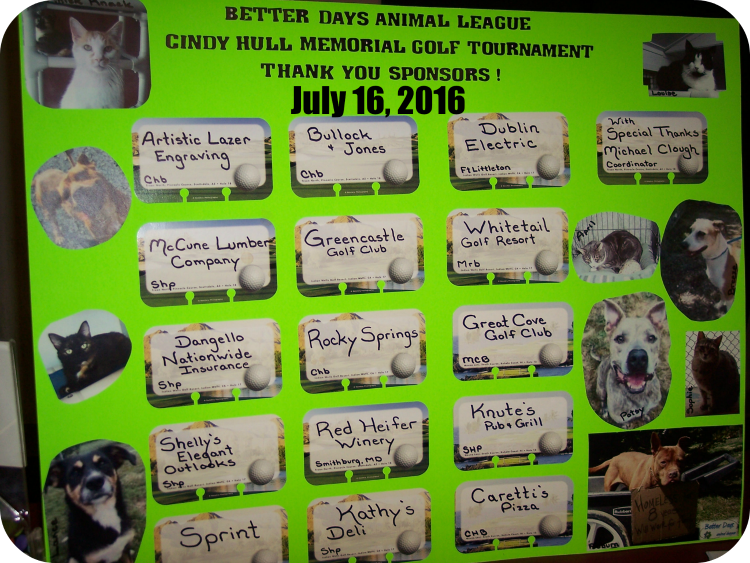 BETTER DAYS ANIMAL LEAGUE
CINDY HULL MEMORIAL GOLF TOURNAMENT
THANK YOU SPONSORS !
July 16, 2016
Louise
Artistic Lazer
Engraving
Chb
Bullock
& Jones
Chb
Dublin
Electric
Ft Littleton
With
Special Thanks
Michael Clough
Coordinator
McCune Lumber
Company
Shp
Greencastle
Golf Club
Whitetail
Golf Resort
Mrb
April
Dangello
Nationwide
Insurance
Shp
Rocky Springs
Chb
Great Cove
Golf Club
MCB
Patsy
Sophie
Shelly's
Elegant
Outlooks
Shp
Red Heifer
Winery
Smithburg, MD
Knute's
Pub & Grill
SHP
Sprint
Kathy's
Deli
Shp
Caretti's
Pizza
CHB
Better Days